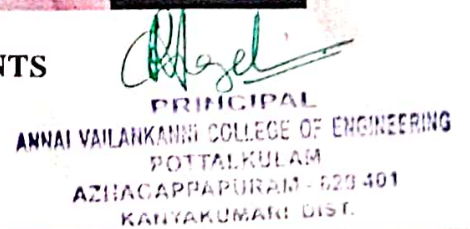 NTS
PRINCIPAL
ANNAI VAILANKANNI COLLEGE OF ENGINEERING
POTTALKULAM
AZHAGAPPAPURAM - 629 401
KANYAKUMARI DIST.